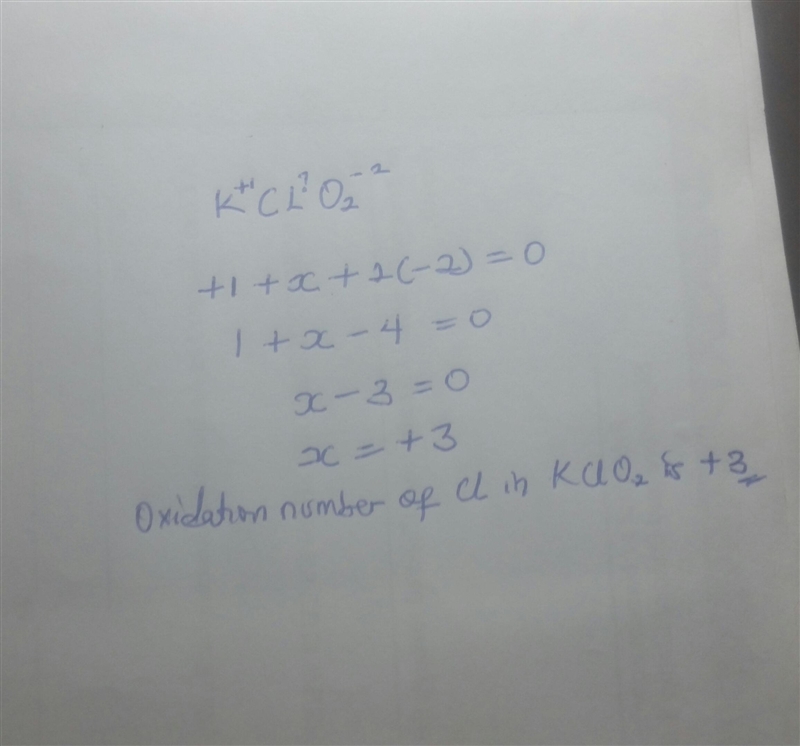 K⁺¹CL?O₂⁻²
+1 + x + 2(-2) = 0
1 + x - 4 = 0
x - 3 = 0
x = +3
Oxidation number of Cl in KClO₂ is +3